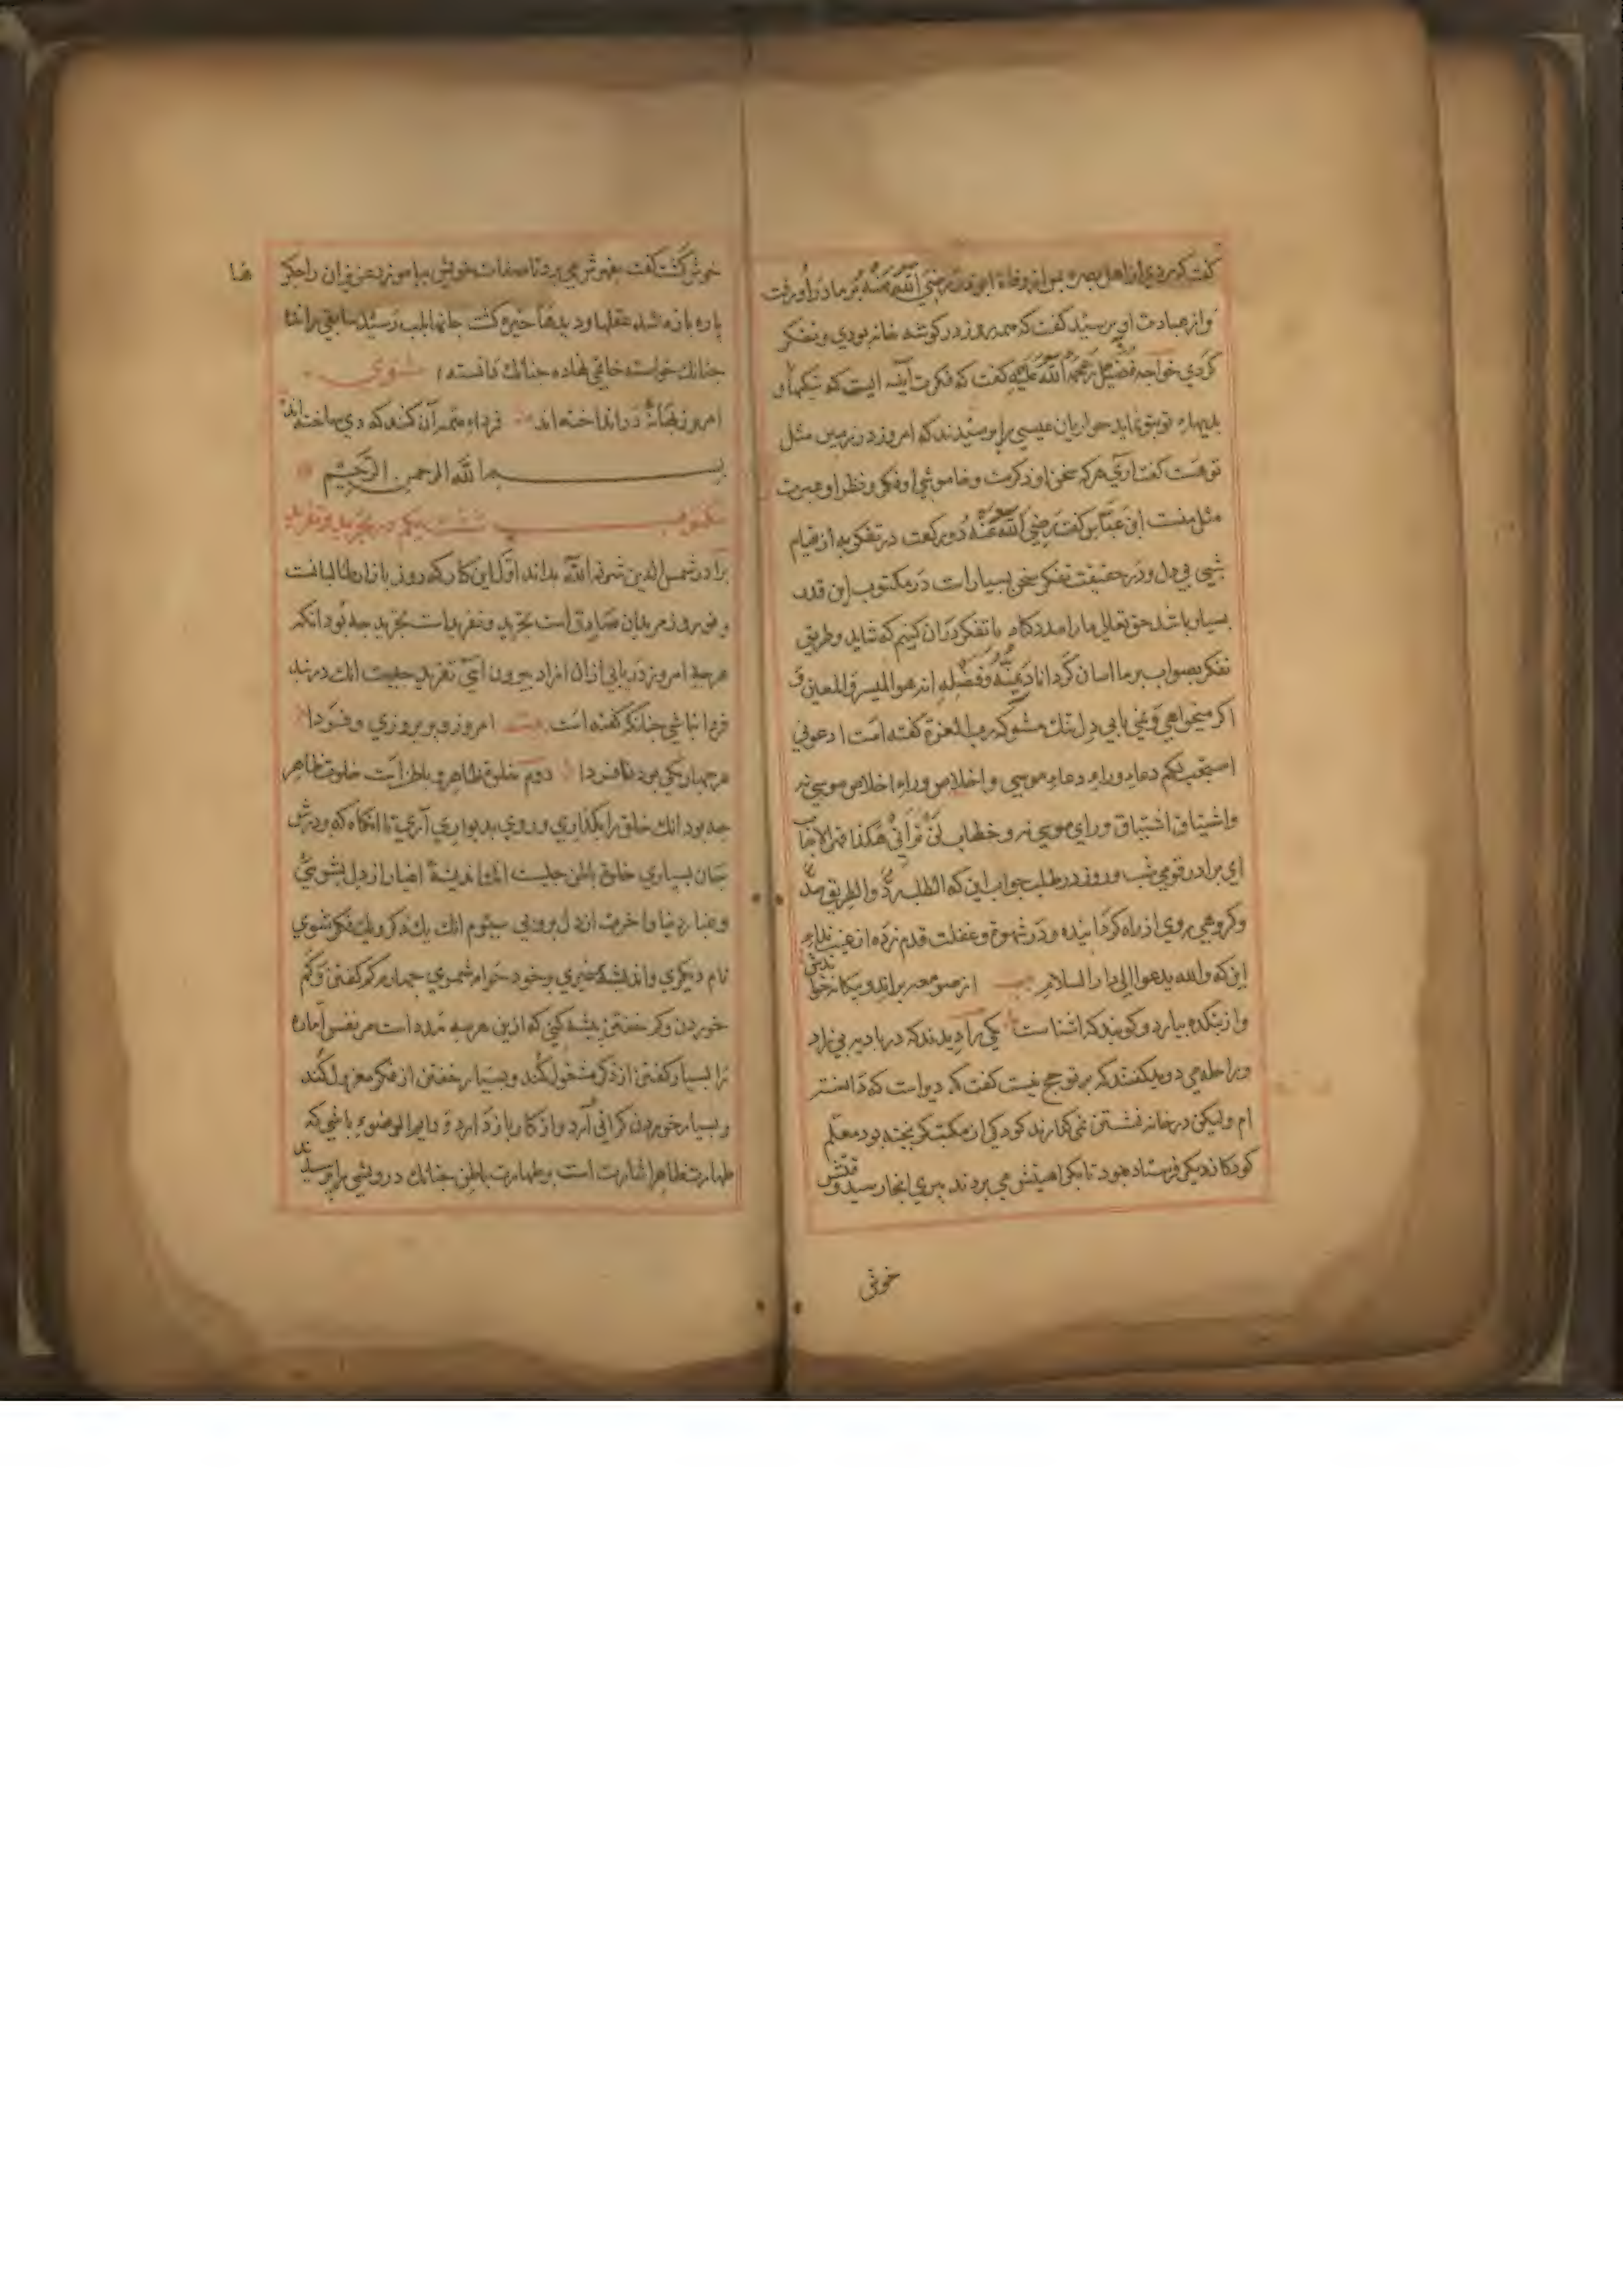 گفت که مردی از اهل بصره پس از وفات ابوذر رضی الله عنه بر مادر او رفت
و از عبادت او پرسید گفت که همه روز در گوشه خانه بودی و تفکر
کردی خواجه فضیل رحمة الله علیه گفت که فکرت آینه ایست که نیکیها و
بدیهاء تو بتو نماید حواریان عیسی را پرسیدند که امروز در زمین مثل
تو هست گفت آری هر که سخن او ذکرست و خاموشی او فکر و نظر او عبرت
مثل منست ابن عباس گفت رضی الله عنه دو رکعت در تفکر به از قیام
شبی بی دل و در حقیقت تفکر سخن بسیارات در مکتوب این قدر
بسیار باشد حق تعالی ما را مدد کناد با تفکر در آن کنیم که شاید و طریق
تفکر بصواب بر ما اسان گرداناد بمنه و فضله انه هو المیسر والمعین و
اکر میخواهی و نمی یابی دل تنگ مشو که رب العزة گفته است ادعونی
استجب لکم دعاء وراء دعاء موسی و اخلاص وراء اخلاص موسی نه
و اشتیاق اشتیاق ورای موسی نه و خطاب لن ترانی هکذا
ای برادر قومی شب و روز در طلب جواب این که الطلب رد والطریق سد
و کروهی روی از راه کردانیده و در شهوة و غفلت قدم زده از غیب نداء
این که والله یدعوا الی دار السلام از صومعه براند و بیگانه خواندش
و از بتکده بیارد و کوید که اشناست یکی را دیدند که در بادیه بی زاد
و راحله می دوید گفتند که بر تو حج نیست گفت که دیرست که دانسته
ام ولیکن در خانه نشستن نمی گذارند کودکی از مکتب گریخته بود معلم
کودکانه یکی فرستاده بود تا بکراهیتش می بردند پیری انجا رسید وقتش
خوش
خوش گشت گفت بقهرش می برد تا صفات خویش بیاموزد عزیزان را جگر
پاره پاره شد عقلها و دیدها خیره گشت جانها بلب رسید سابقی رانده
چنانک خواسته خاتمی نهاده چنانک دانسته مثنوی
امروز بهانه در انداخته اند فردا همه آن کنند که دی ساخته اند
بسم الله الرحمن الرحیم
مکتوب شصت یکم در تجرید و تفرید
برادر شمس الدین شرفه الله بداند اول این کار که روز بازار طالبانست
و نوروز مریدان صادق است تجرید و تفریدات تجرید چه بود انکه
هر چه امروز دریابی از ان ازاد بیرون آئی تفرید چیست انک در بند
فردا نباشی چنانکه گفته است بیت امروز و پریروز و دی و فردا
هر چهار یکی بود تو فردا دوم خلوة ظاهر و باطن است خلوت ظاهر
چه بود انک خلق را بگذاری و روی بدیواری آری تا انگاه که بر درش
جان بسپاری خلوة باطن چیست انک اندیشه اغیار از دل بشویی
و غبار دنیا و اخرت از دل بروبی سیوم انک یک ذکر و یک فکر شوی
نام دیکری و اندیشه غیری بر خود حرام شمری چهارم کم گفتن و کم
خوردن و کم خفتن پیشه کنی که ازین هر سه مدد است مر نفس اماره
را بسیار گفتن از ذکر مشغول کند و بسیار خفتن از فکر معزول کند
و بسیار خوردن گرانی آرد و از کار باز دارد و دایم الوضوء باشی که
طهارت ظاهر اشارت است بطهارت باطن چنانک درویشی را پرسیدند